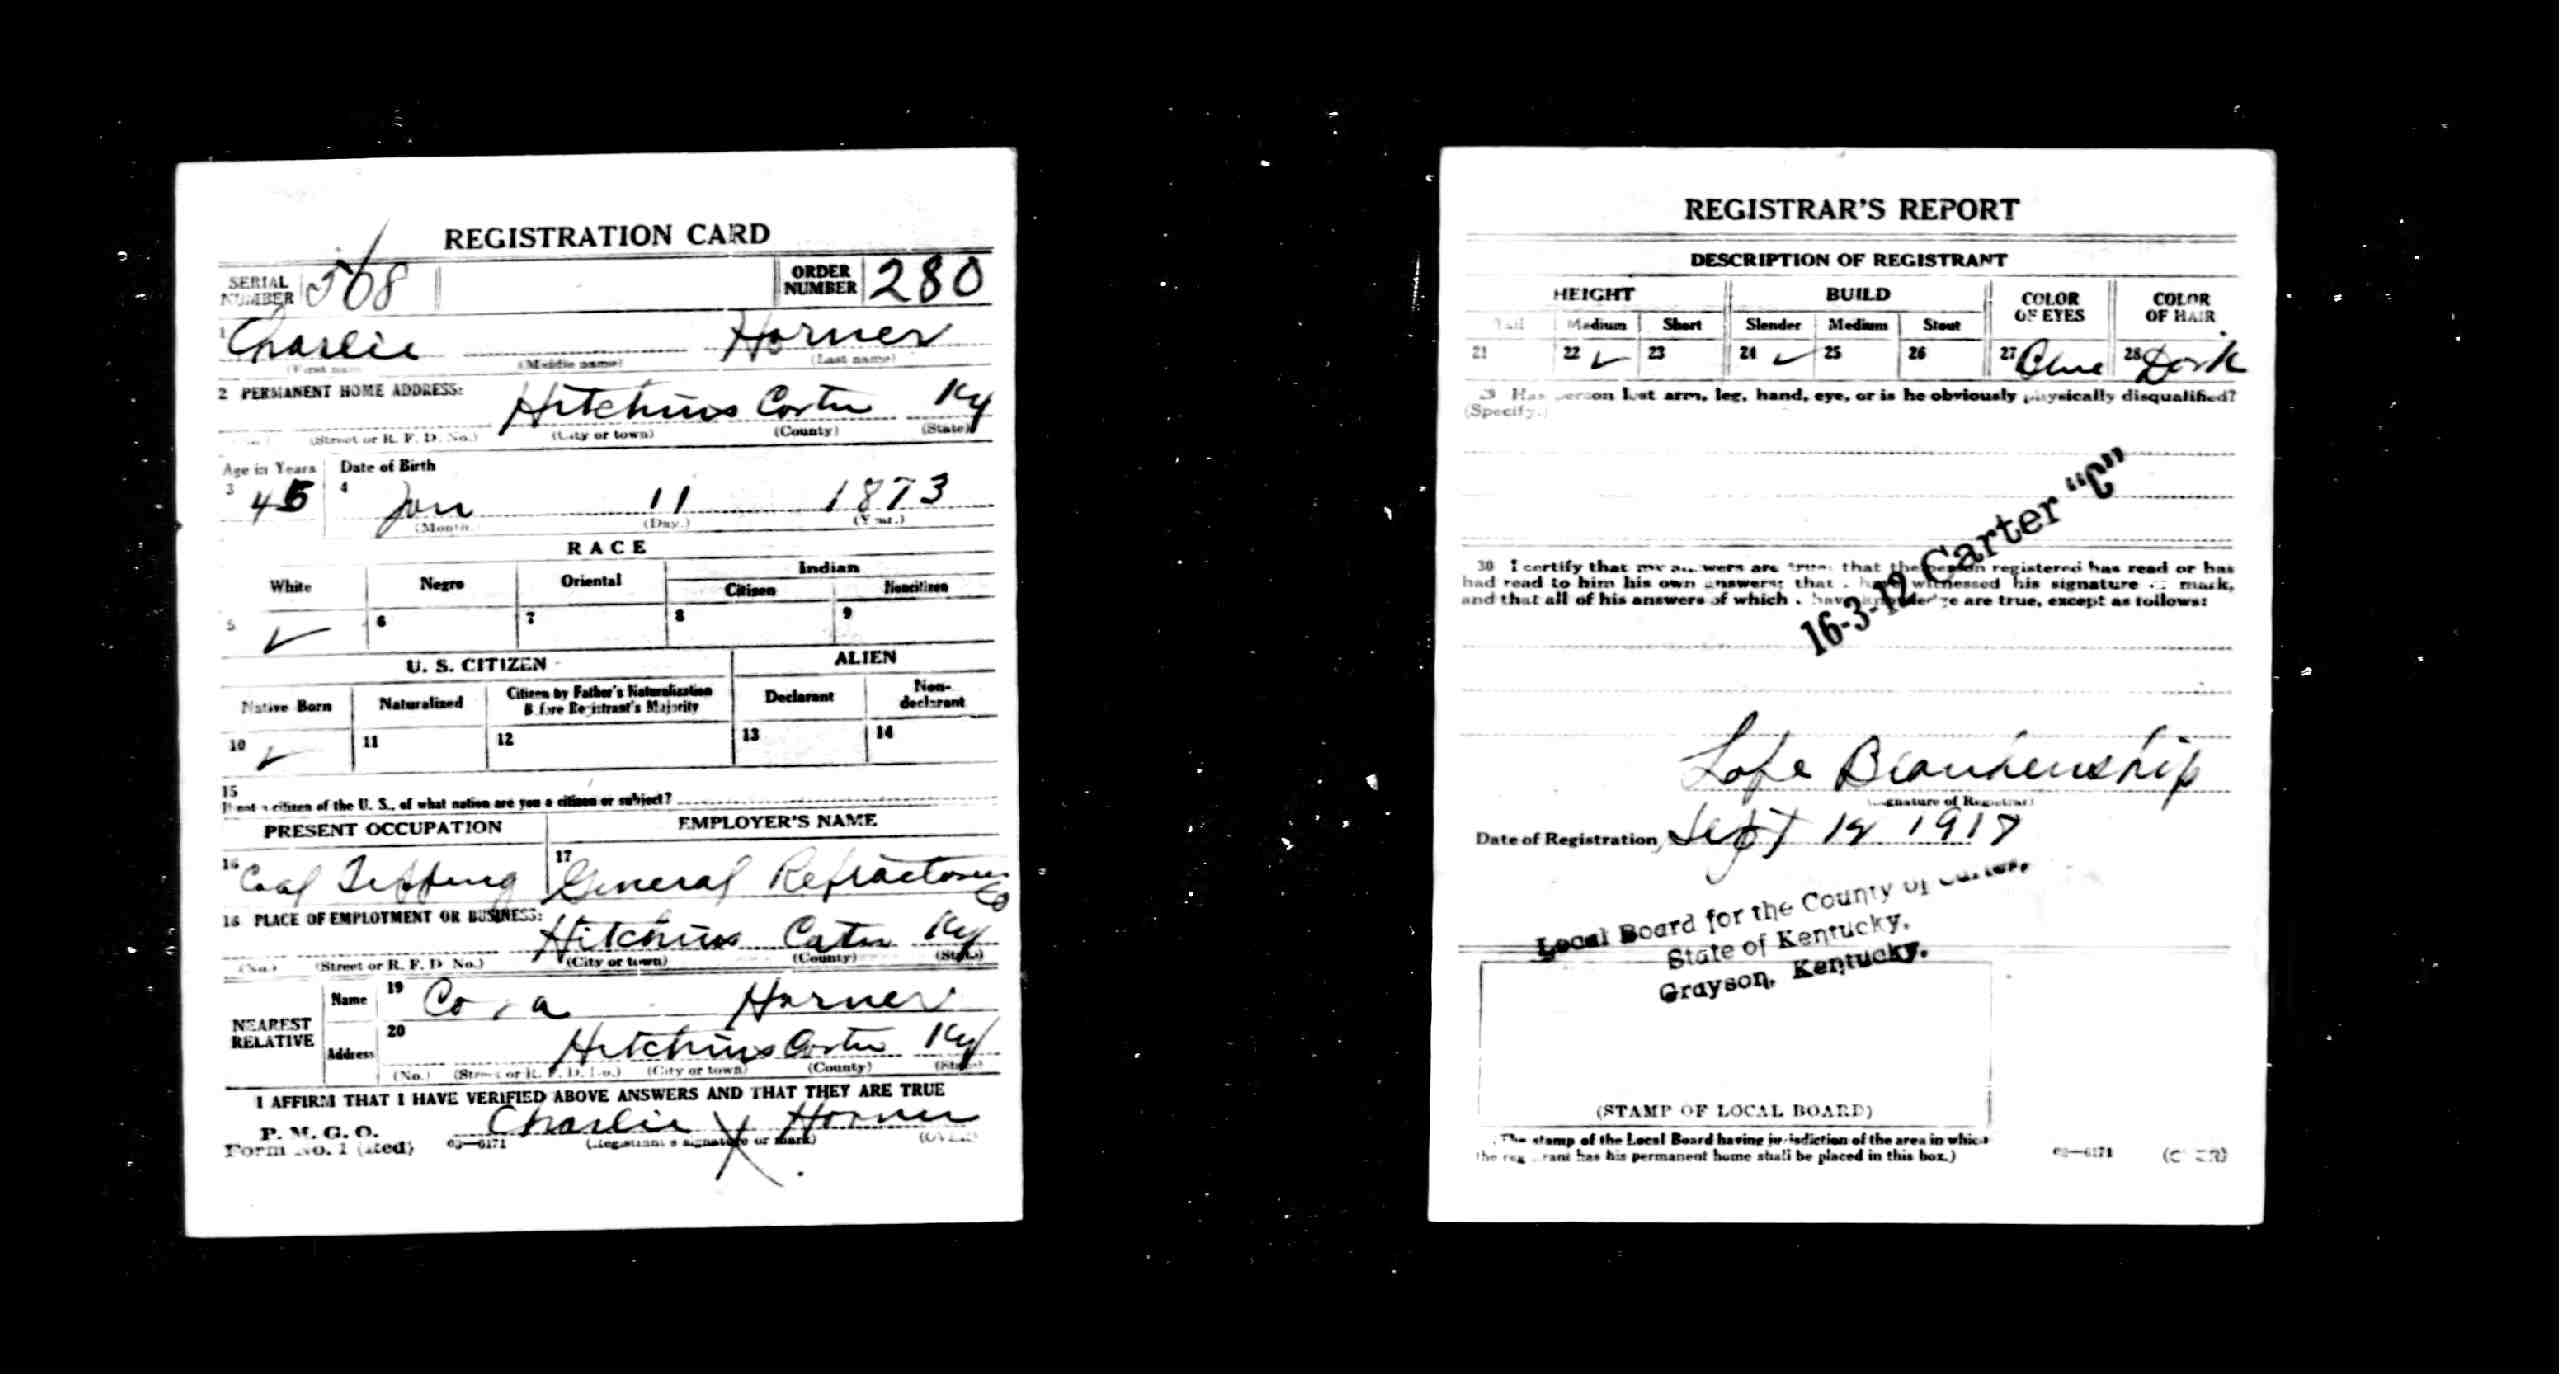 REGISTRATION CARD
SERIAL NUMBER 568 ORDER NUMBER 280
1 Charlie Horner
(First name) (Middle name) (Last name)
2 PERMANENT HOME ADDRESS:
Hitchins Carter Ky
(Street or R. F. D. No.) (City or town) (County) (State)
Age in Years Date of Birth
3 45 4 Jan 11 1873
(Month.) (Day.) (Year.)
RACE
White Negro Oriental Indian
Citizen Noncitizen
5 ✓ 6 7 8 9
U. S. CITIZEN ALIEN
Native Born Naturalized Citizen by Father's Naturalization Before Registrant's Majority Declarant Non-declarant
10 ✓ 11 12 13 14
15
If not a citizen of the U. S., of what nation are you a citizen or subject?
PRESENT OCCUPATION EMPLOYER'S NAME
16 Coal 17 General Refractories Co
18 PLACE OF EMPLOYMENT OR BUSINESS:
Hitchins Ky
(No.) (Street or R. F. D. No.) (City or town) (County) (State)
NEAREST RELATIVE
Name 19 Co a Horner
Address 20 Hitchins Carter Ky
(No.) (Street or R. F. D. No.) (City or town) (County) (State)
I AFFIRM THAT I HAVE VERIFIED ABOVE ANSWERS AND THAT THEY ARE TRUE
P. M. G. O.
Form No. 1 (Red) 03—6171 Charlie X Horner
(Registrant's signature or mark) (OVER)
REGISTRAR'S REPORT
DESCRIPTION OF REGISTRANT
HEIGHT BUILD COLOR OF EYES COLOR OF HAIR
Tall Medium Short Slender Medium Stout
21 22 ✓ 23 24 ✓ 25 26 27 Blue 28 Dark
29 Has person lost arm, leg, hand, eye, or is he obviously physically disqualified?
(Specify.)
16-3-12 Carter "C"
30 I certify that my answers are true; that the person registered has read or has
had read to him his own answers; that I have witnessed his signature or mark,
and that all of his answers of which I have knowledge are true, except as follows:
Blankenship
(Signature of Registrar)
Date of Registration Sept 12 1918
Local Board for the County of Carter,
State of Kentucky,
Grayson, Kentucky.
(STAMP OF LOCAL BOARD)
(The stamp of the Local Board having jurisdiction of the area in which
the registrant has his permanent home shall be placed in this box.)
03—6171 (OVER)